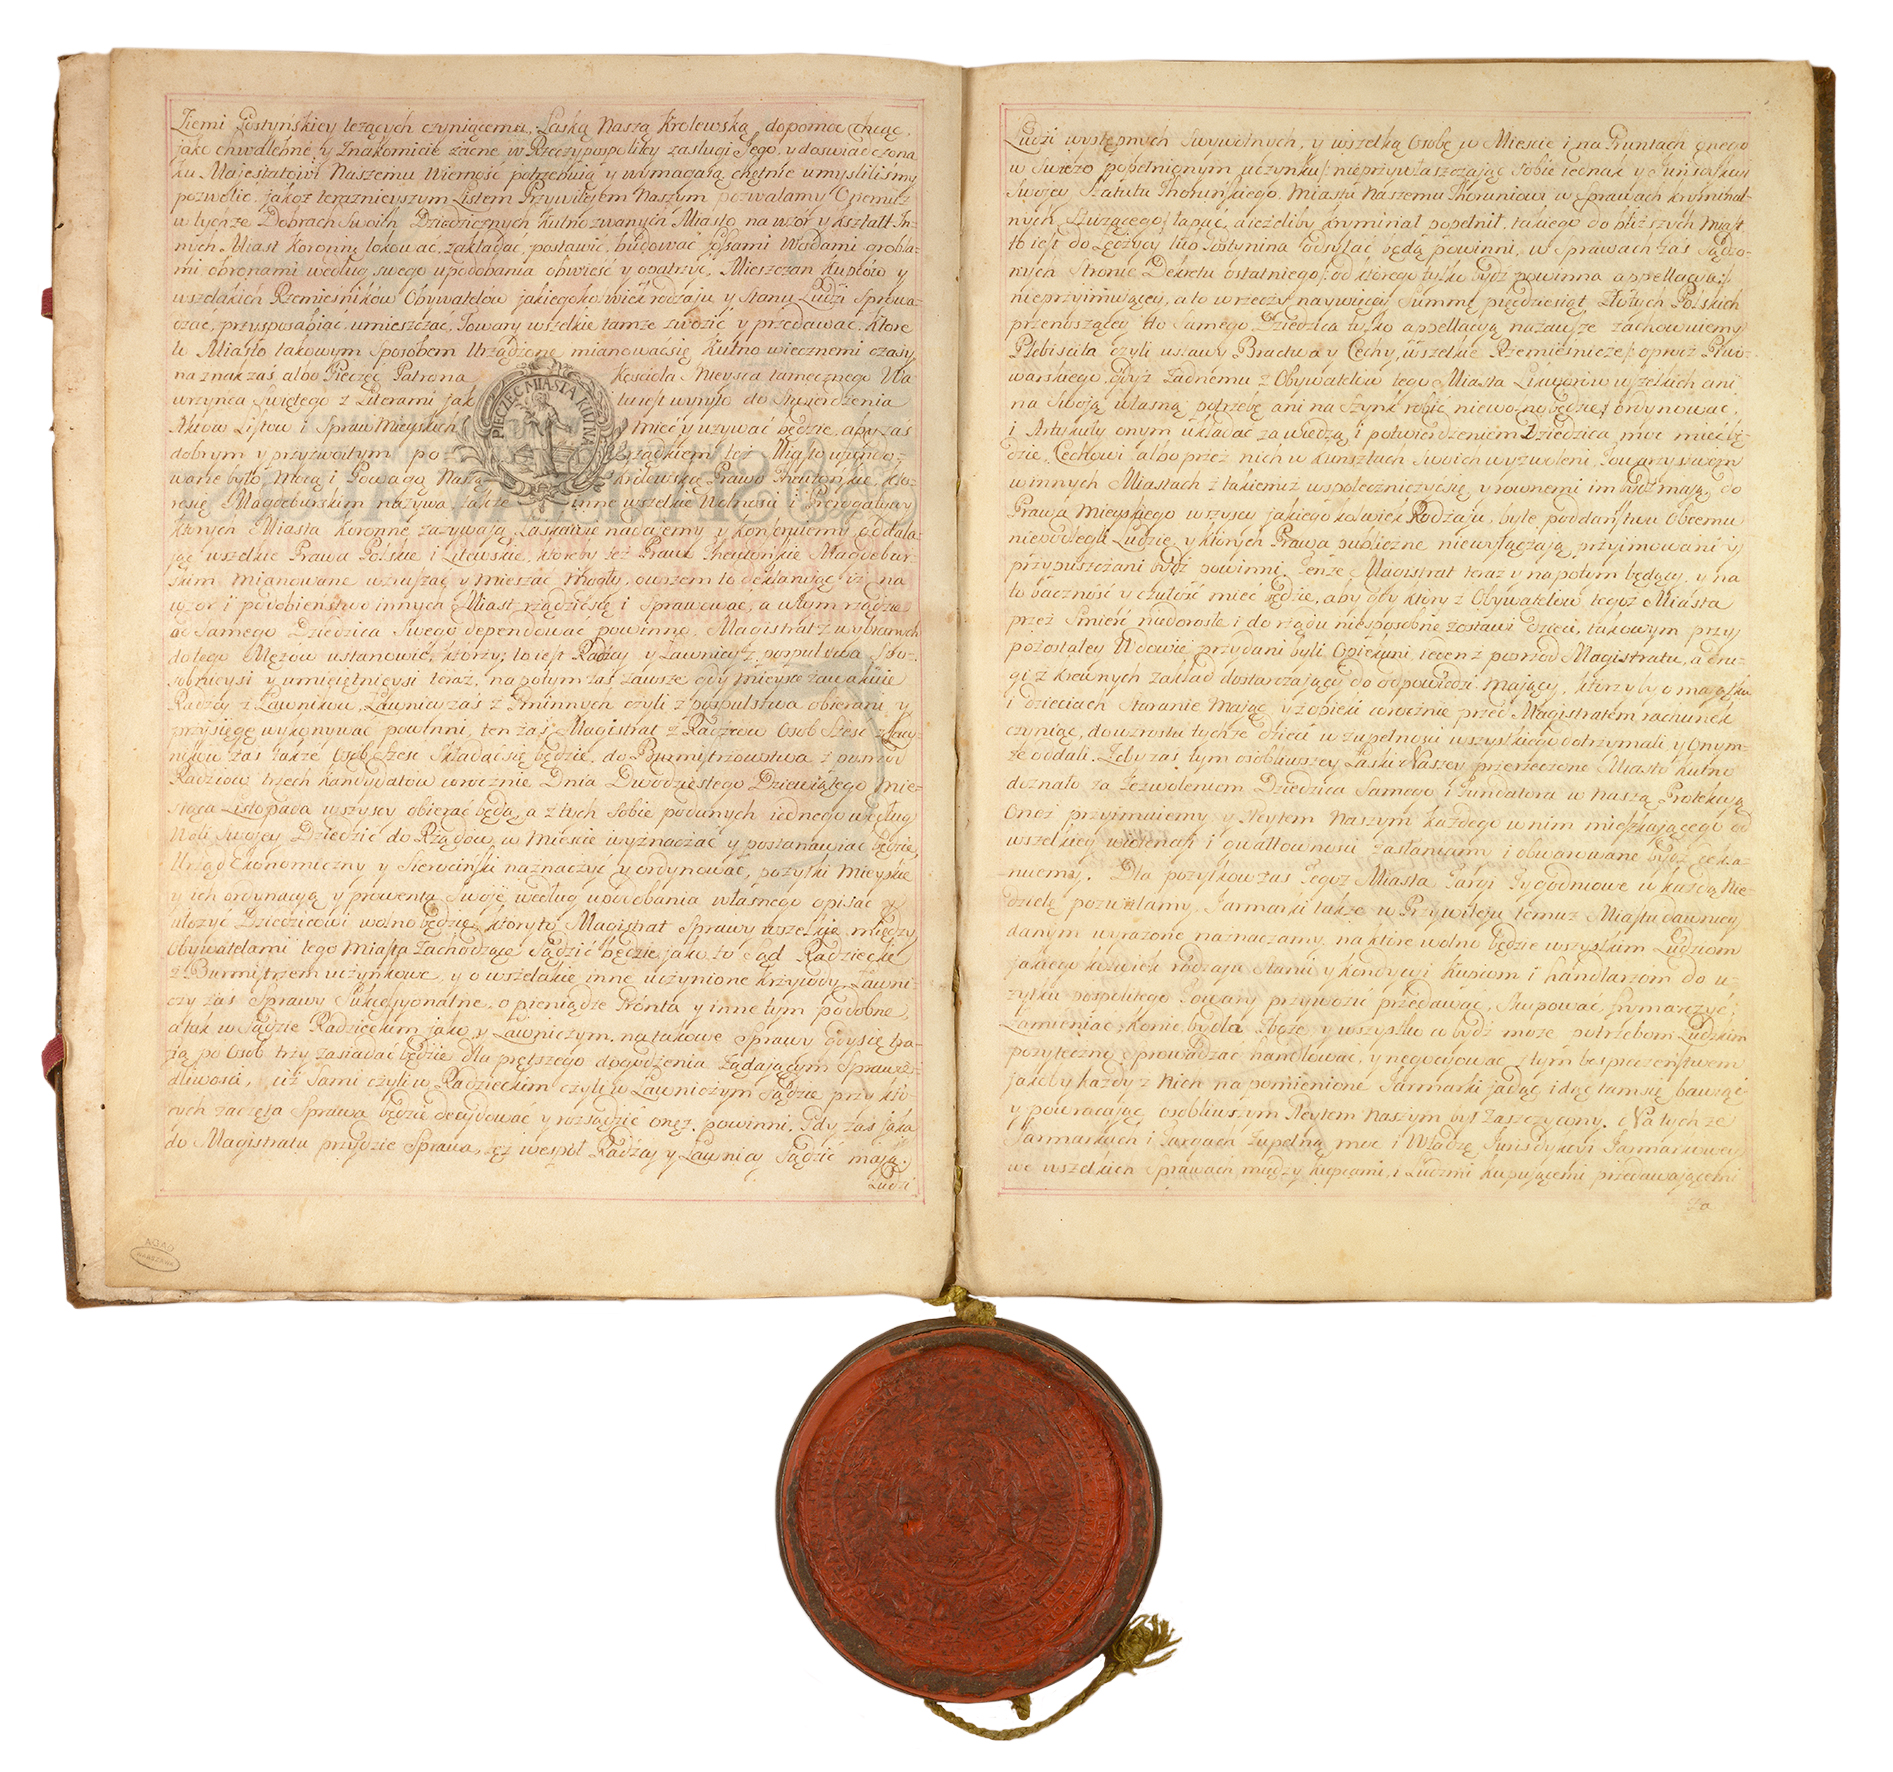 Ziemi Gostyńskiey leżących czyniącemu, Łaską Naszą Krolewską dopomoc chcąc,
jako chwalebne y Znakomicie zacne w Rzeczypospolitey zasługi Jego, y doswiadczona
ku Majestatowi Naszemu Wierność potrzebuią y wymagaią chętnie umysliliśmy
pozwolić, jakoż teraznieyszym Listem Przywilejem Naszym pozwalamy Onemuż
w tychże Dobrach Swoich Dziedzicznych Kutno zwanych Miasto na wzór y kształt In-
nych Miast Koronnę lokować, zakładać, postawić, budować fossami Wodami grobla-
mi obronami według swego upodobania obwieść y opatrzyć, Mieszczan Kupców y
wszelakich Rzemieśników Obywatelów jakiegokolwiek rodzaju y Stanu Ludzi Sprowa-
dzać, przysposabiać, umieszczać, Towary wszelkie tamże zwozić y przedawać. Ktore
to Miasto takowym Sposobem Urządzone mianowaćsię Kutno wiecznemi czasy
na znak zaś albo Pieczęć Patrona Kościoła Mieysca tamecznego Wa-
wrzynca Swiętego z Literami jak tu iest wyryto do Stwierdzenia
PIECZĘC MIASTA KUTNA
Aktow Listow i Spraw Mieyskich mieć y używać będzie, aby zaś
dobrym y przyzwoitym po- rządkiem też Miasto ufundo-
wane było Mocą i Powagą Naszą Królewską Prawo Theutońskie, kto-
resię Magdeburskim nazywa, także inne wszelkie Wolności i Prerogatywy
których Miasta Koronne zażywaią Łaskawie nadajemy y konferuiemy oddala-
jąc wszelkie Prawa Polskie i Litewskie, któreby też Prawo Theutońskie Magdebur-
skim mianowane wzruszać y mieszać mogły, owszem to deklaruiąc iż na
wzór i podobieństwo innych Miast rządzićsię i Sprawować, a w tym rządzie
od Samego Dziedzica Swego dependować powinno, Magistrat z wybranych
do tego Mężów ustanowić, którzy, to iest Radzcy y Ławnicy z pospulstwa Spo-
sobnieysi y umieiętnieysi teraz, na potym zaś zawsze gdy mieysce zawakuie
Radzcy z Ławników, Ławnicy zaś z Gminnych czyli z pospulstwa obierani y
przysięgę wykonywać powinni, ten zaś Magistrat z Radzców Osob Sześć z Ław-
ników zaś także Osob Sześć Składaćsię będzie, do Burmistrzowstwa z pomiędz
Radzców trzech kandydatów corocznie Dnia Dwudziestego Dziewiątego Mie-
siąca Listopada wszyscy obierać będą, a z tych Sobie podanych iednego według
Woli Swojey Dziedzic do Rządów w Mieście wyznaczać y postanawiać będzie
Urząd Ekonomiczny y Sierociński naznaczyć y ordynować, pożytki Mieyskie
y ich ordynacyą y prowenta Swoje według upodobania własnego opisać y
ułożyć Dziedzicowi wolno będzie, który to Magistrat Sprawy wszelkie między
Obywatelami tego Miasta Zachodzące Sądzić będzie, jako to Sąd Radziecki
z Burmistrzem uczynkowe, y o wszelakie inne uczynione krzywdy, Ławni-
czy zaś Sprawy Sukcessyonalne, o pieniądze Gronta y inne tym podobne,
a tak w Sądzie Radzieckim, jako y Ławniczym, na takowe Sprawy gdysię tra-
fią po Osob trzy zasiadać będzie dla prętszego dogodzenia żądającym Sprawie-
dliwości, ciż Sami czyli w Radzieckim czyli w Ławniczym Sądzie przy kto-
rych zaczęta Sprawa będzie decydować y rozsądzić onęż powinni. Gdy zaś jaka
do Magistratu przydzie Sprawa, też wespół Radzcy y Ławnicy Sądzić mają.
Ludzi
Ludzi występnych Swywolnych, y wszelką Osobę w Mieście i na Gruntach onego
w Swieżo popełnionym uczynku /: nieprzywłaszczając Sobie iednak y Juriskwi
Swojey Statutu Thoruńskiego, Miastu Naszemu Thoruniowi w Sprawach kryminal-
nych Służącego :/ łapać, a ieżeliby kryminał popełnił, takiego do bliższych Miast
to iest do Łęczycy lub Gostynina odsyłać będą powinni, w Sprawach zaś Sądzo-
nych Stronie Dekretu ostatniego /: od którego tylko bydź powinna appellacya :/
nieprzyimuiącey, a to w rzeczy naywięcey Summę pięćdziesiąt Złotych Polskich
przenoszącey do Samego Dziedzica tylko appellacyą na zawsze zachowuiemy
Plebiscita czyli ustawy Bractwa y Cechy, wszelkie Rzemieśnicze /: oprócz Piwo-
warskiego, gdyż żadnemu z Obywatelów tego Miasta Likworów wszelkich ani
na Swoją własną potrzebę ani na Szynk robić niewolno będzie :/ ordynować,
i Artykuły onym układać za wiedzą i potwierdzeniem Dziedzica moc mieć bę-
dzie, Cechowi albo przez nich w kunsztach Swoich wyzwoleni Towarzystwem
w innych Miastach z takiemiż wspołecznićsię y rownemi im bydź mają, do
Prawa Mieyskiego wszyscy jakiegokolwiek Rodzaju, byle poddaństwu Obcemu
niepodlegli Ludzie, y których Prawa publiczne niewyłączają przyimowani y
przypuszczani bydź powinni. Tenże Magistrat teraz y na potym będący, y na
to baczność y czułość mieć będzie, aby gdy który z Obywatelów tegoż Miasta
przez Smierć niedorosłe i do rządu niesposobne zostawi dzieci, takowym przy
pozostałey Wdowie przydani byli Opiekuni, ieden z pośrzód Magistratu, a dru-
gi z krewnych zakład dostarczający do odpowiedzi mający, którzyby o majątku
i dzieciach Staranie mając, y z opieki corocznie przed Magistratem rachunek
czyniąc, do wzrostu tychże dzieci w zupełności wszystkiego dotrzymali y Onym-
że oddali. Żeby zaś tym osobliwszey Łaski Naszey przerzeczone Miasto Kutno
doznało za Zezwoleniem Dziedzica Samego i Fundatora w Naszą Protekcyą
Oneż przyimuiemy, y Gleytem Naszym każdego w nim mieszkaiącego od
wszelkiey wiolencyi i gwałtowności zasłaniamy i obwarowane bydź dekla-
ruiemy. Dla pożytków zaś Tegoż Miasta Targi Tygodniowe w każdą Nie-
dzielę pozwalamy, Jarmarki także w Przywileju temuż Miastu dawniey
danym wyrażone naznaczamy, na które wolno będzie wszystkim Ludziom
jakiegokolwiek rodzaju Stanu y kondycyi Kupcom i handlarzom do u-
żytku pospolitego Towary przywozić przedawać, Skupować frymarczyć,
Zamieniać, Konie, bydła Zboże, y wszystko co bydź może potrzebom Ludzkim
pożyteczne Sprowadzać handlować, y negocyować z tym bespieczeństwem
jakoby każdy z Nich na pomienione Jarmarki jadąc idąc tam się bawiąc
y powracając osobliwszym Gleytem Naszym był Zaszczycony. Na tychże
Jarmarkach i Targach zupełną moc i Władzę Jurisdykcyi Jarmarkowey
we wszelkich Sprawach między Kupcami, i Ludzmi kupującemi przedawającemi
Za
AGAD
WARSZAWA